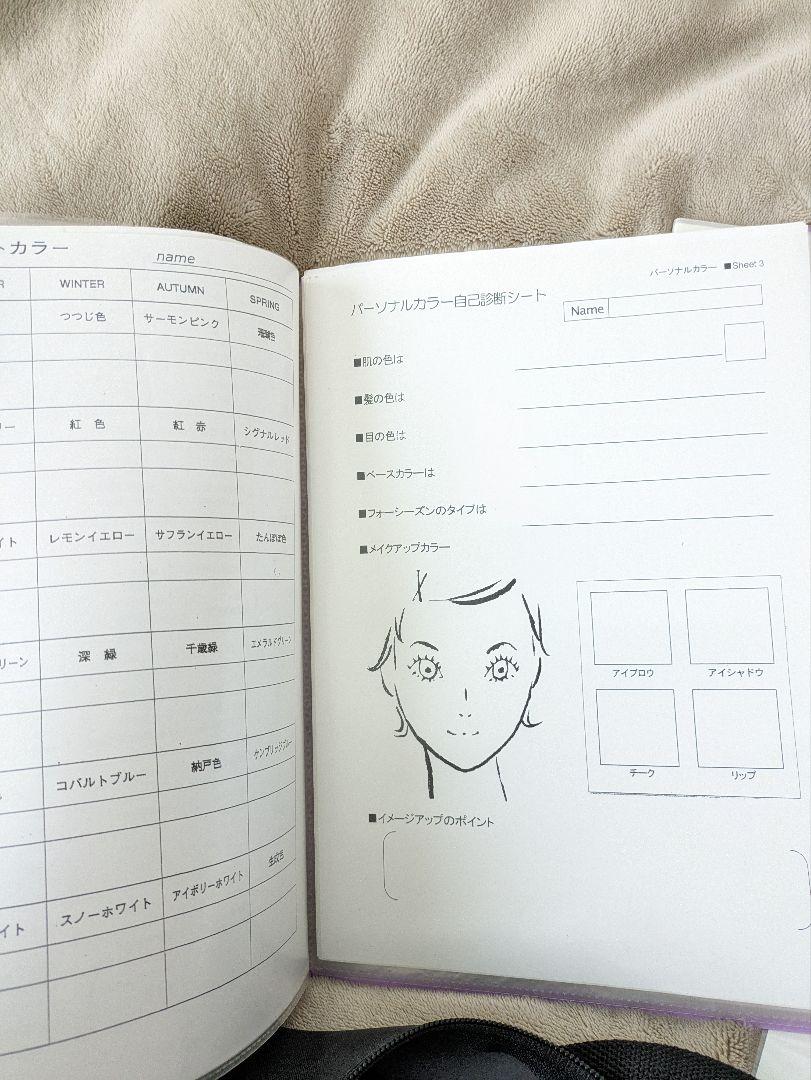 トカラー
name
R WINTER AUTUMN SPRING
つつじ色 サーモンピンク 珊瑚色
ー 紅 色 紅 赤 シグナルレッド
イト レモンイエロー サフランイエロー たんぽぽ色
リーン 深 緑 千歳緑 エメラルドグリーン
コバルトブルー 納戸色 ケンブリッジブルー
イト スノーホワイト アイボリーホワイト 生成色
パーソナルカラー ■Sheet 3
パーソナルカラー自己診断シート
Name
■肌の色は
■髪の色は
■目の色は
■ベースカラーは
■フォーシーズンのタイプは
■メイクアップカラー
アイブロウ アイシャドウ
チーク リップ
■イメージアップのポイント